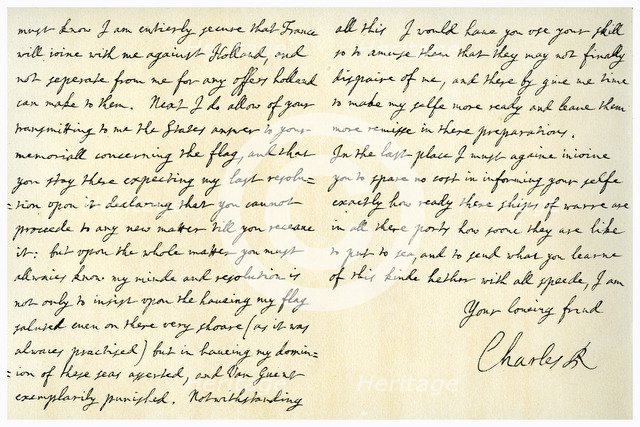 must know I am entierly secure that France
will joine with me against Holland, and
not seperate from me for any offers holland
can make to them. Next I do allow of your
transmitting to me the States answer to your
memoriall concerning the flag, and that
you stay there expecting my last resolu=
=tion upon it declaring that you cannot
proceede to any new matter till you receave
it: but upon the whole matter you must
allwaies know my minde and resolution is
not only to insist upon the haveing my flag
saluted even on there very shoare (as it was
alwaies practised) but in haveing my domin=
=ion of these seas asserted, and Van Guent
exemplarily punished. Notwithstanding
all this I would have you use your skill
so to amuse them that they may not finally
dispaire of me, and there by give me time
to make my selfe more ready and leave them
more remisse in there preparations.
In the last place I must againe injoine
you to spare no cost in informing your selfe
exactly how ready there ships of warre are
in all there ports how soone they are like
to put to sea, and to send what you learne
of this kinde hether with all speede, I am
Your loveing frind
Charles R
Heritage